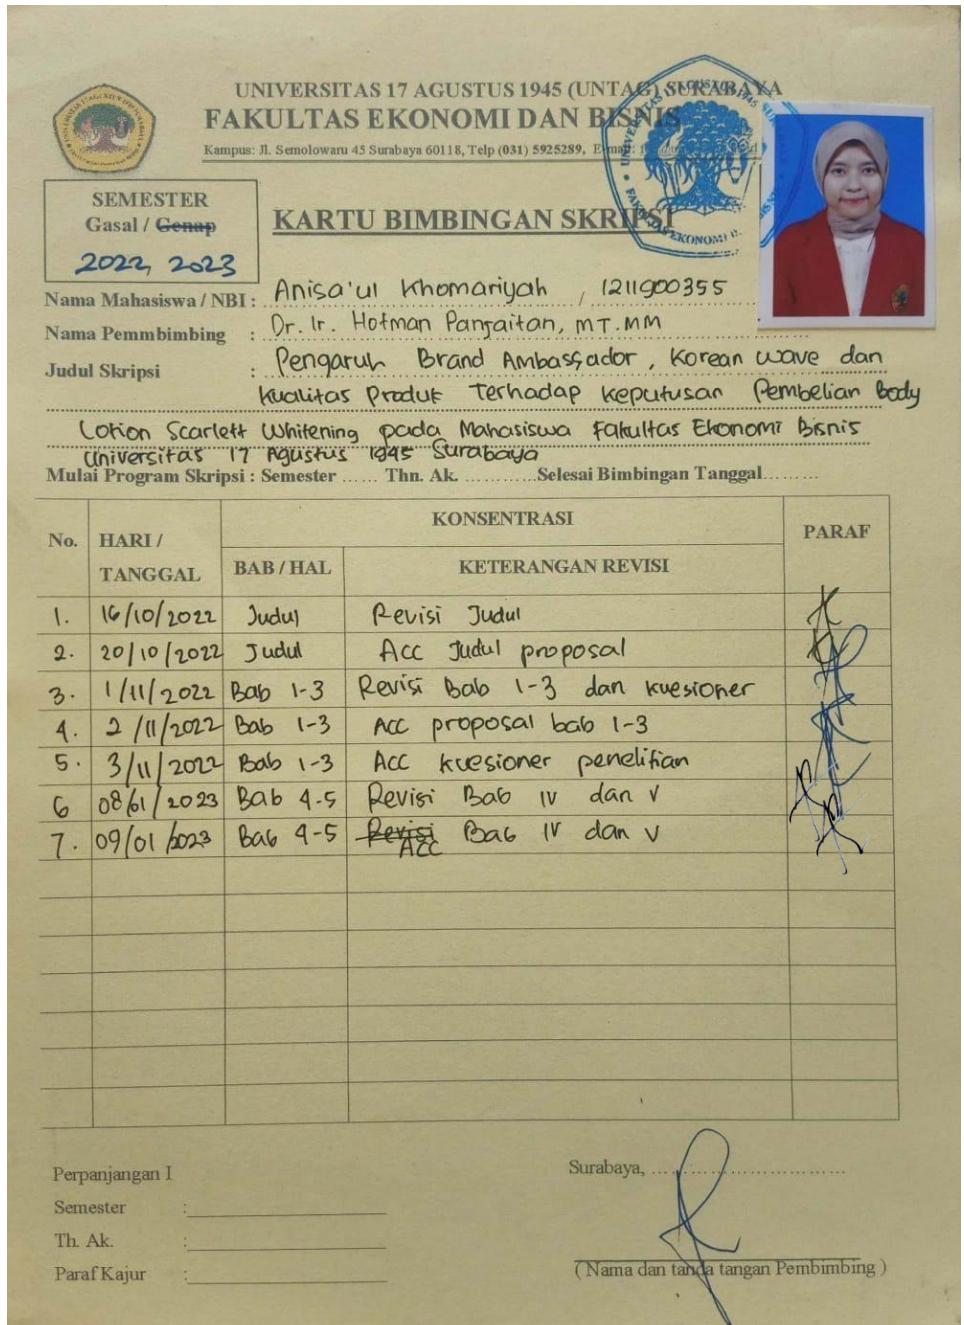 UNIVERSITAS 17 AGUSTUS 1945 (UNTAG) SURABAYA
FAKULTAS EKONOMI DAN BISNIS
Kampus: Jl. Semolowaru 45 Surabaya 60118, Telp (031) 5925289,
SEMESTER
Gasal / Genap
2022, 2023
KARTU BIMBINGAN SKRIPSI
Nama Mahasiswa / NBI : Anisa'ul Khomariyah / 1211900355
Nama Pemmbimbing : Dr. Ir. Hotman Panjaitan, MT. MM
Judul Skripsi : Pengaruh Brand Ambassador, Korean wave dan
Kualitas Produk Terhadap Keputusan Pembelian Body
Lotion Scarlett Whitening pada Mahasiswa Fakultas Ekonomi Bisnis
Universitas 17 Agustus 1945 Surabaya
Mulai Program Skripsi : Semester ...... Thn. Ak. ............Selesai Bimbingan Tanggal.........
No. HARI / TANGGAL KONSENTRASI PARAF
BAB / HAL KETERANGAN REVISI
1. 16/10/2022 Judul Revisi Judul
2. 20/10/2022 Judul Acc Judul proposal
3. 1/11/2022 Bab 1-3 Revisi Bab 1-3 dan kuesioner
4. 2/11/2022 Bab 1-3 Acc proposal bab 1-3
5. 3/11/2022 Bab 1-3 Acc kuesioner penelitian
6 08/01/2023 Bab 4-5 Revisi Bab IV dan V
7. 09/01/2023 Bab 4-5 Revisi Acc Bab IV dan V
Perpanjangan I
Surabaya, ..............................
Semester :
Th. Ak. :
Paraf Kajur :
( Nama dan tanda tangan Pembimbing )